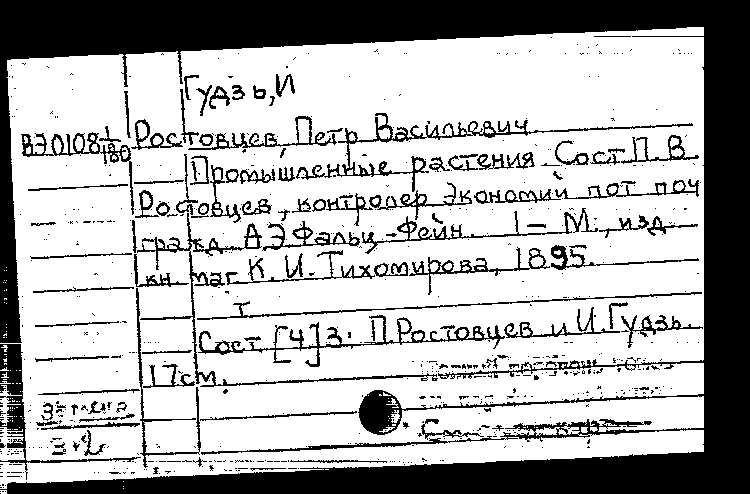 Гудзь, И
ВЭ0108 1/180 Ростовцев, Петр Васильевич.
Промышленные растения. Сост П. В.
Ростовцев, контролер экономий пот поч
гражд. А.Э Фальц-Фейн. 1 – М., изд.
кн. маг К. И. Тихомирова, 1895.
Т
Сост [4]3: П.Ростовцев и И.Гудзь.
17 см.